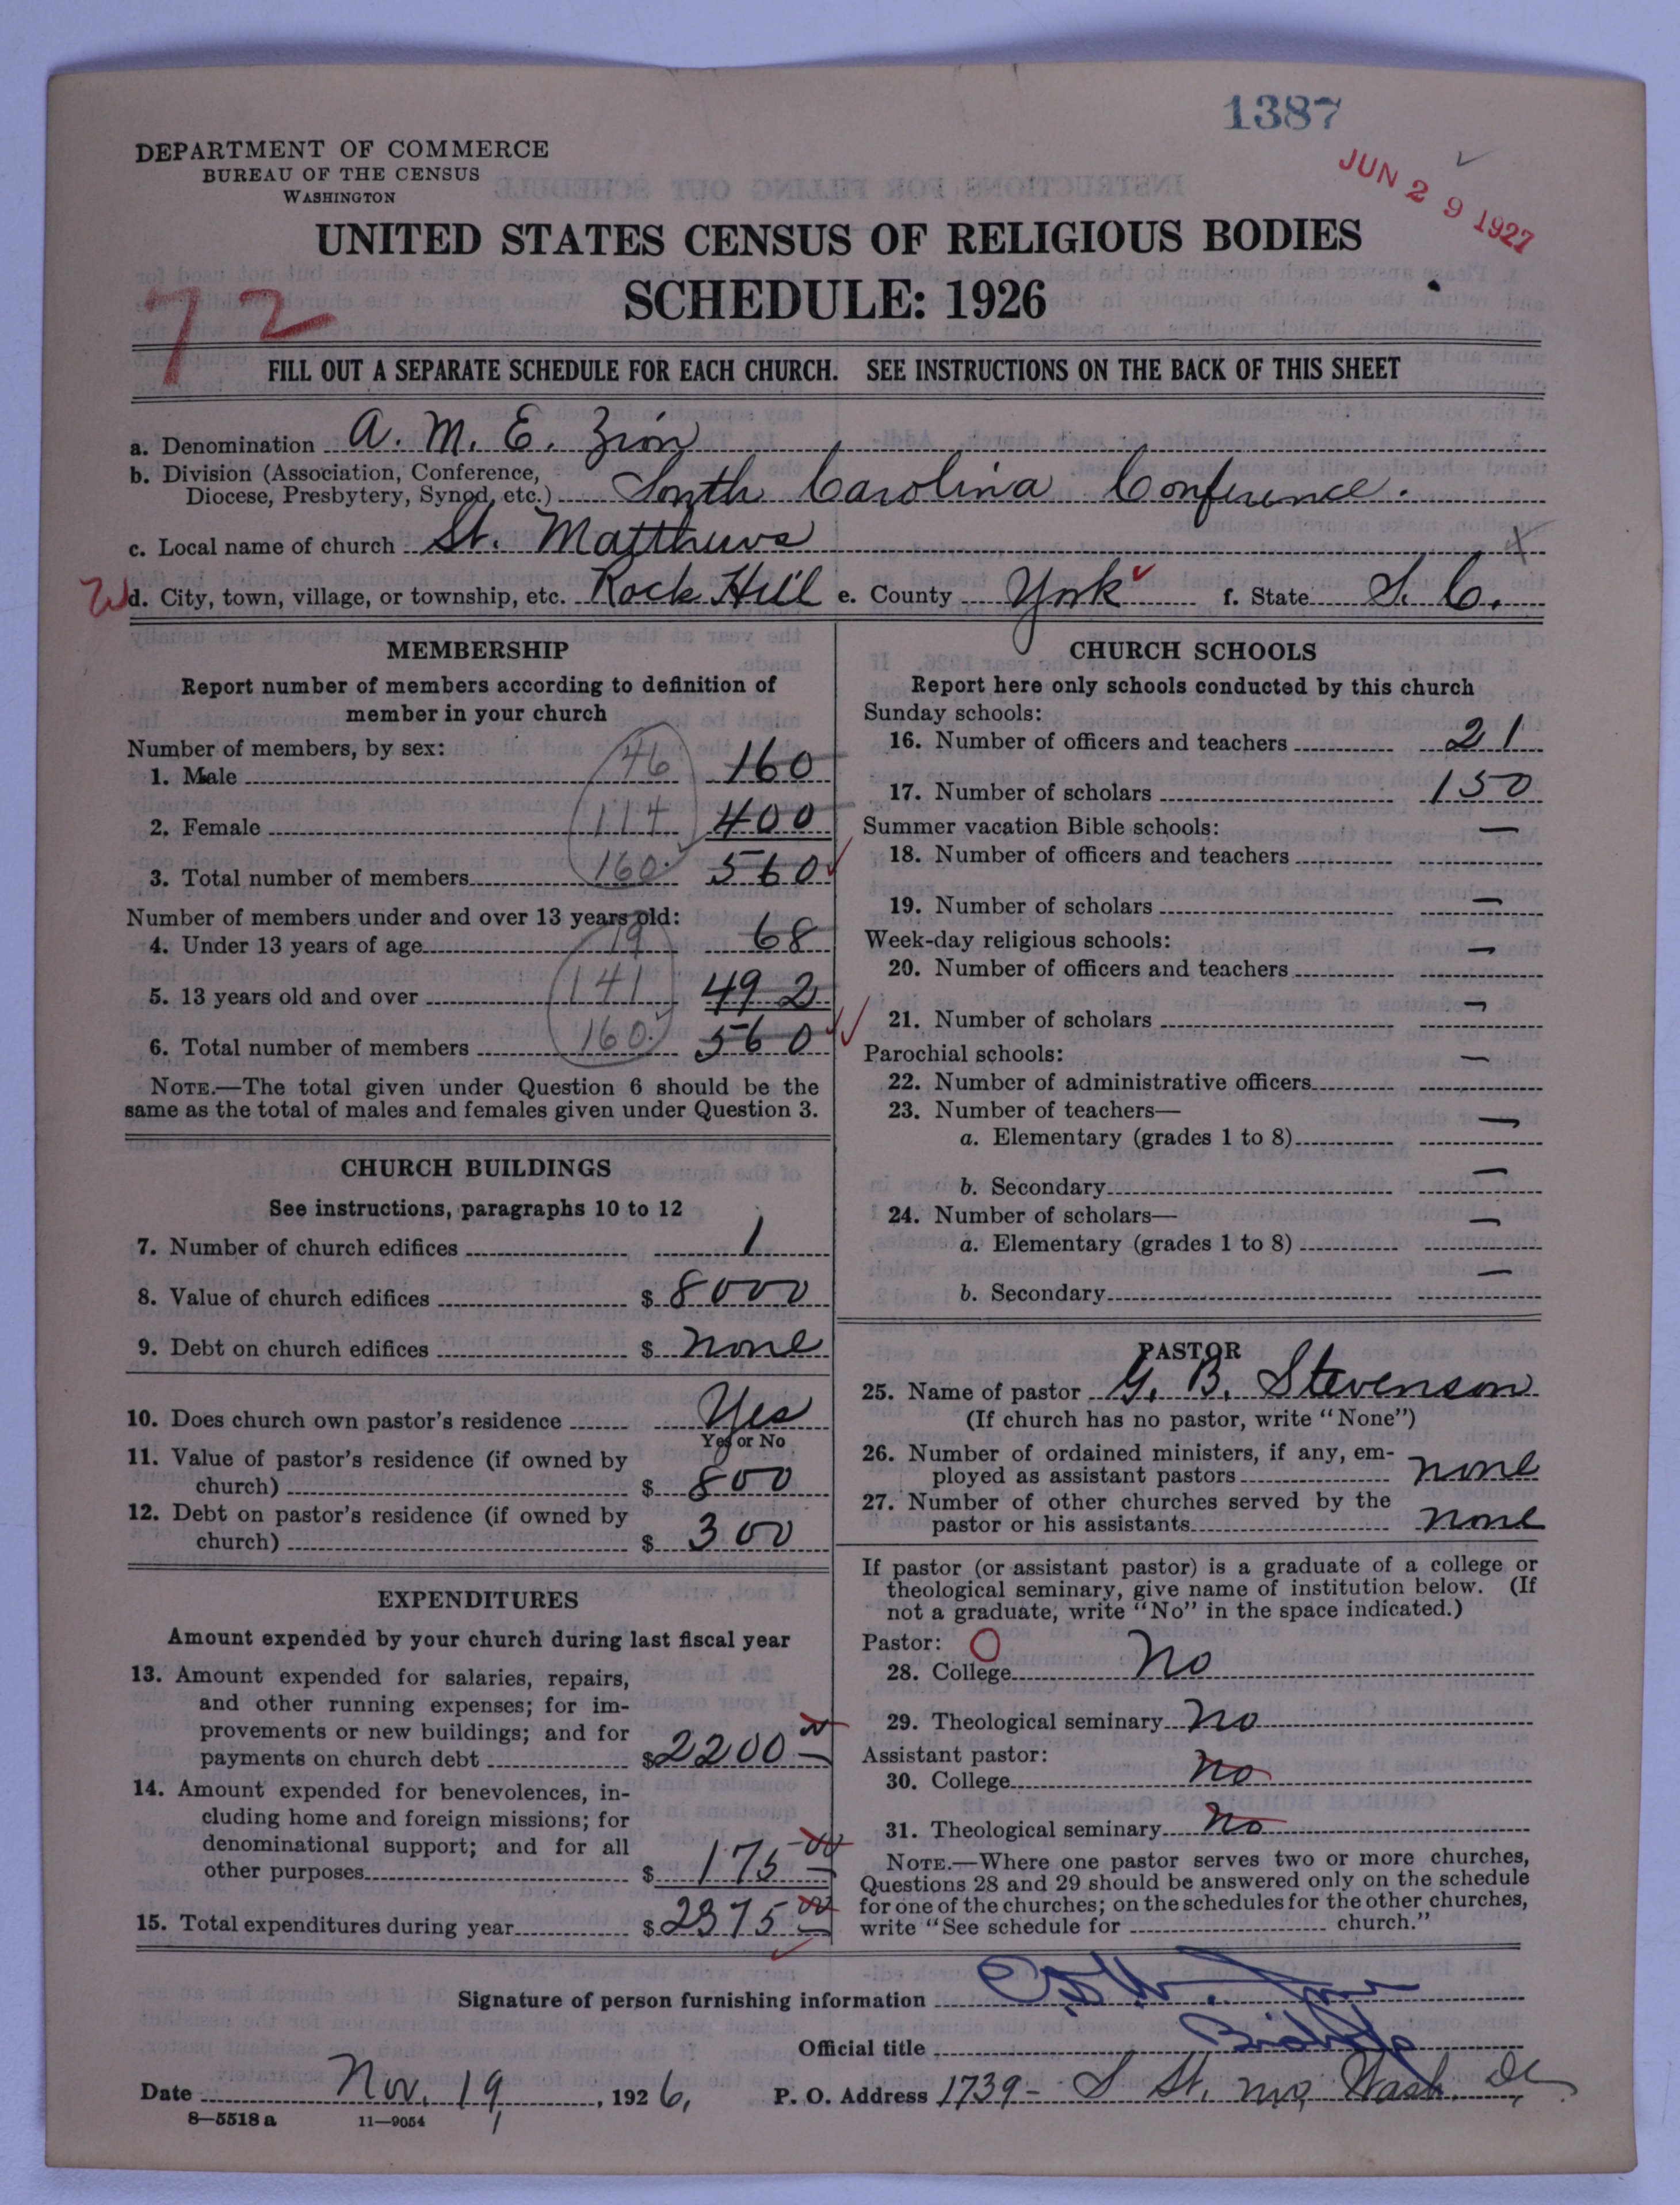 1387
JUN 29 1927
DEPARTMENT OF COMMERCE
BUREAU OF THE CENSUS
WASHINGTON
UNITED STATES CENSUS OF RELIGIOUS BODIES
SCHEDULE: 1926
72
FILL OUT A SEPARATE SCHEDULE FOR EACH CHURCH. SEE INSTRUCTIONS ON THE BACK OF THIS SHEET
a. Denomination A. M. E. Zion
b. Division (Association, Conference,
Diocese, Presbytery, Synod, etc.) South Carolina Conference.
c. Local name of church St. Matthews
d. City, town, village, or township, etc. Rock Hill e. County York f. State S. C.
MEMBERSHIP
Report number of members according to definition of
member in your church
Number of members, by sex:
1. Male 46 160
2. Female 114 400
3. Total number of members 160 560
Number of members under and over 13 years old:
4. Under 13 years of age 19 68
5. 13 years old and over 141 492
6. Total number of members 160 560
NOTE.—The total given under Question 6 should be the
same as the total of males and females given under Question 3.
CHURCH BUILDINGS
See instructions, paragraphs 10 to 12
7. Number of church edifices 1
8. Value of church edifices $ 8000
9. Debt on church edifices $ none
10. Does church own pastor's residence Yes
Yes or No
11. Value of pastor's residence (if owned by
church) $ 800
12. Debt on pastor's residence (if owned by
church) $ 300
EXPENDITURES
Amount expended by your church during last fiscal year
13. Amount expended for salaries, repairs,
and other running expenses; for im-
provements or new buildings; and for
payments on church debt $ 2200
14. Amount expended for benevolences, in-
cluding home and foreign missions; for
denominational support; and for all
other purposes $ 175 00
15. Total expenditures during year $ 2375 00
CHURCH SCHOOLS
Report here only schools conducted by this church
Sunday schools:
16. Number of officers and teachers 21
17. Number of scholars 150
Summer vacation Bible schools:
18. Number of officers and teachers —
19. Number of scholars —
Week-day religious schools:
20. Number of officers and teachers —
21. Number of scholars —
Parochial schools:
22. Number of administrative officers —
23. Number of teachers—
a. Elementary (grades 1 to 8) —
b. Secondary —
24. Number of scholars—
a. Elementary (grades 1 to 8) —
b. Secondary —
PASTOR
25. Name of pastor G. B. Stevenson
(If church has no pastor, write "None")
26. Number of ordained ministers, if any, em-
ployed as assistant pastors none
27. Number of other churches served by the
pastor or his assistants none
If pastor (or assistant pastor) is a graduate of a college or
theological seminary, give name of institution below. (If
not a graduate, write "No" in the space indicated.)
Pastor: O
28. College No
29. Theological seminary No
Assistant pastor:
30. College No
31. Theological seminary No
NOTE.—Where one pastor serves two or more churches,
Questions 28 and 29 should be answered only on the schedule
for one of the churches; on the schedules for the other churches,
write "See schedule for church."
Signature of person furnishing information
Official title Bishop
Date Nov. 19, 1926, P. O. Address 1739- S St. NW, Wash. DC
8—5518 a 11—9054